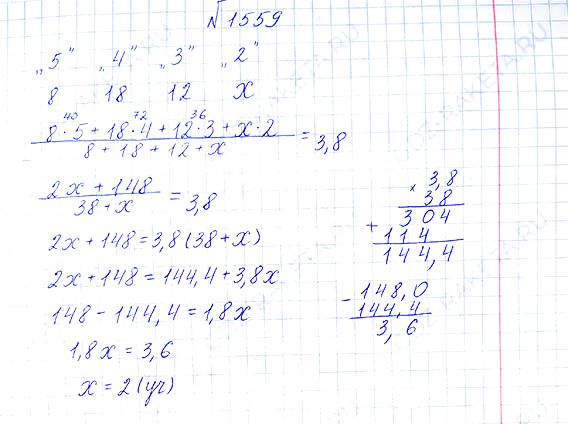 №1559
„5" „4" „3" „2"
8 18 12 x
40 72 36
8·5+18·4+12·3+x·2
8+18+12+x
= 3,8
2x+148
38+x
= 3,8
2x+148=3,8(38+x)
2x+148=144,4+3,8x
148-144,4=1,8x
1,8x=3,6
x=2(уч)
× 3,8
38
304
+ 114
144,4
- 148,0
144,4
3,6
GDZ-RAKETA.RU